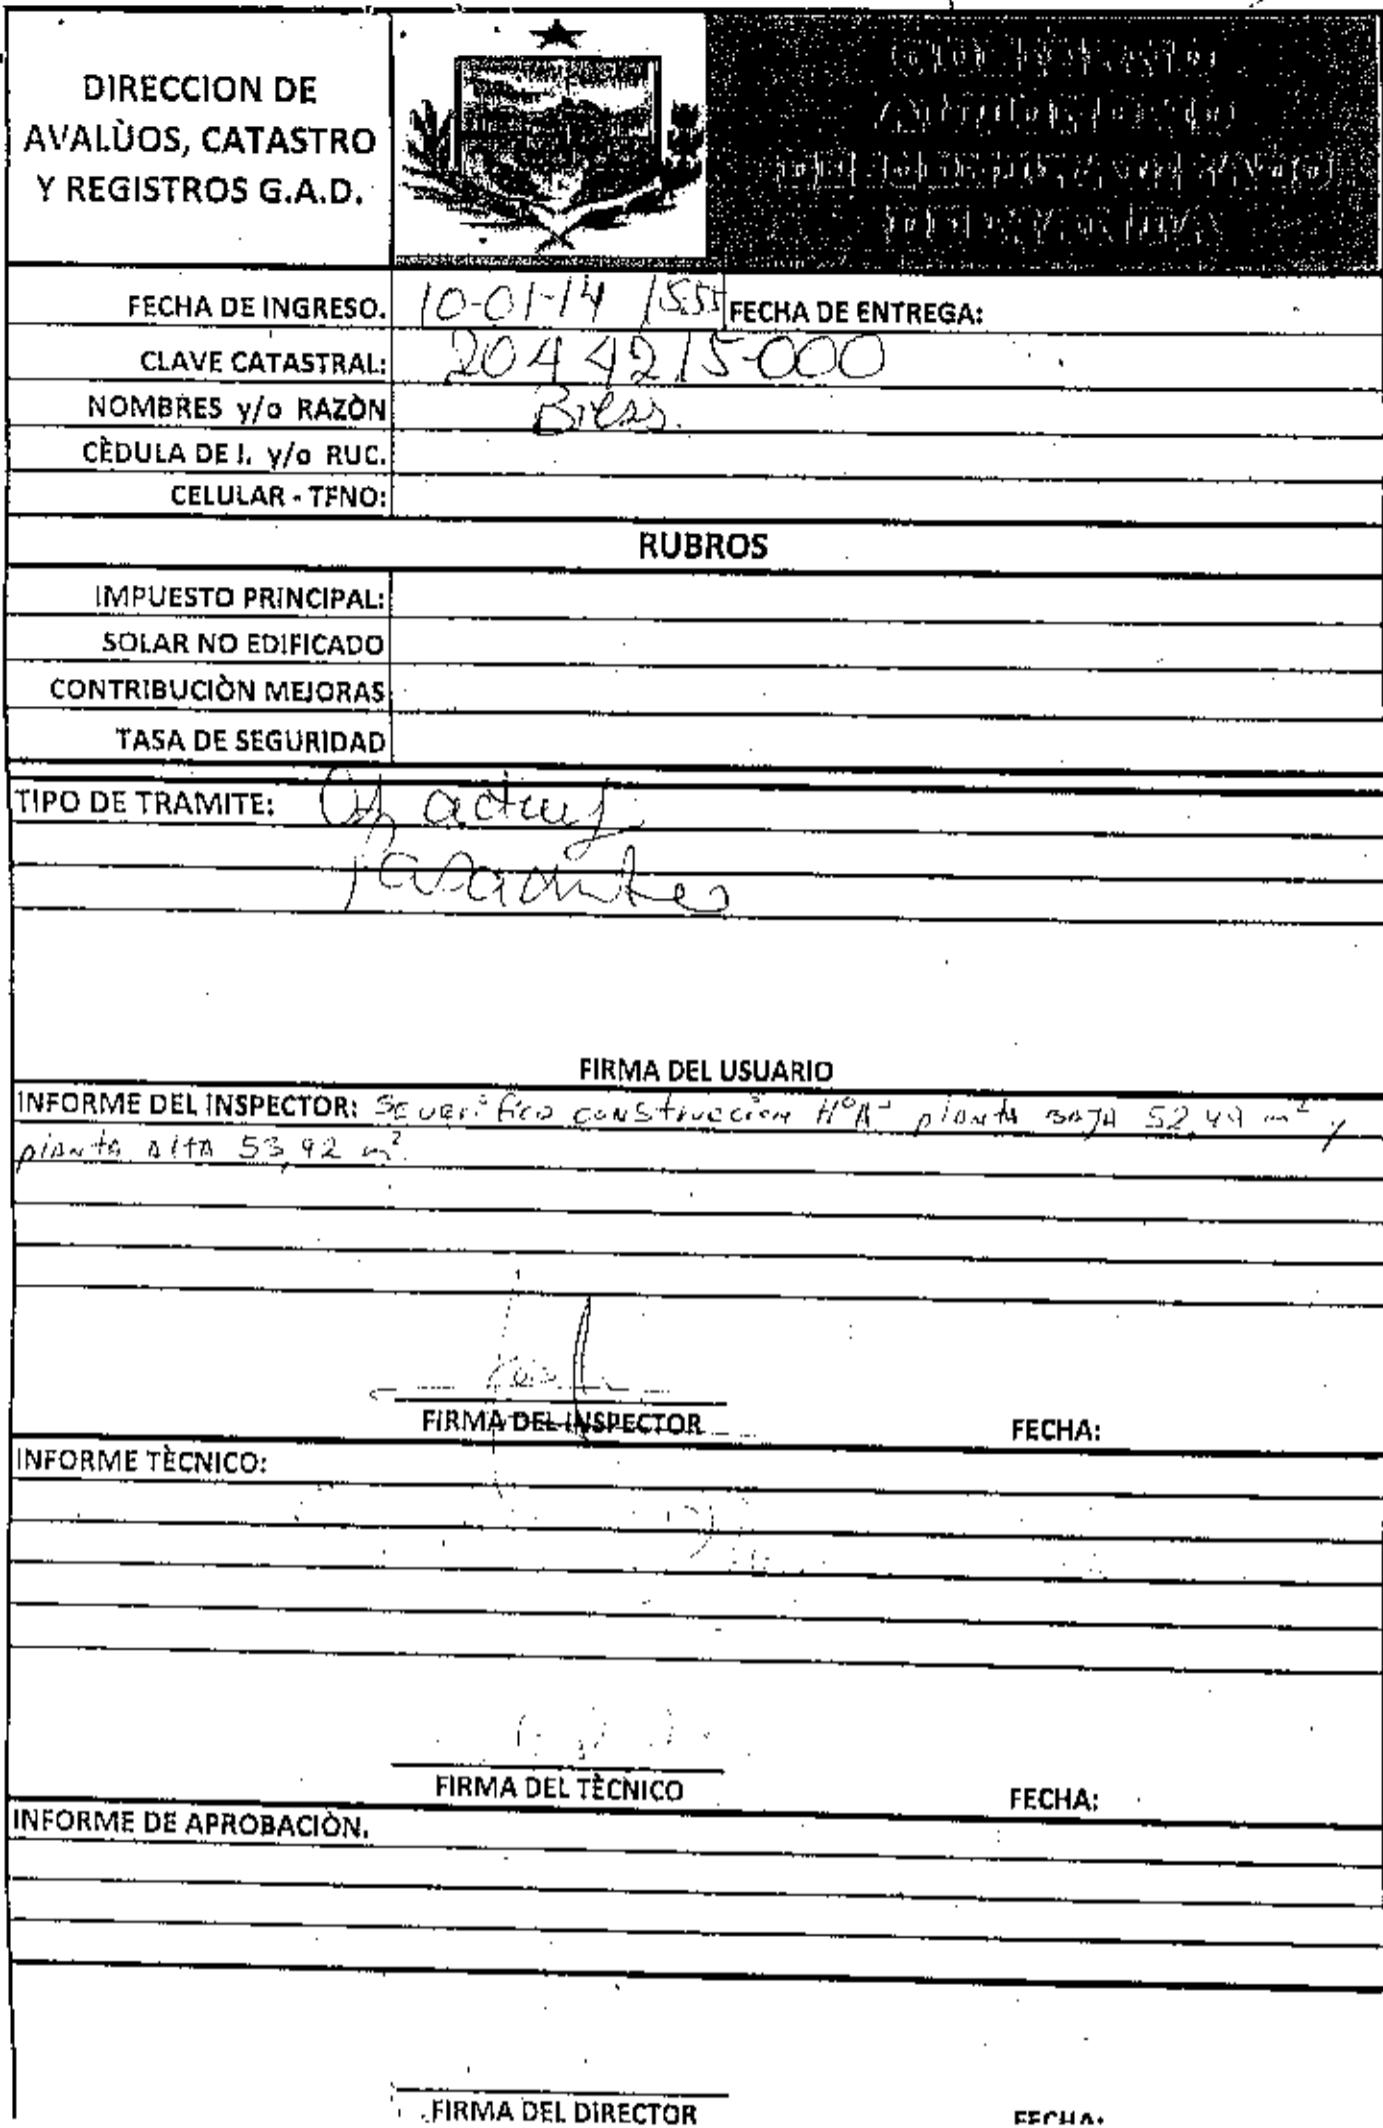 DIRECCION DE
AVALÙOS, CATASTRO
Y REGISTROS G.A.D.
FECHA DE INGRESO. 10-01-14 15:55 FECHA DE ENTREGA:
CLAVE CATASTRAL: 2044215-000
NOMBRES y/o RAZÒN Biess.
CÈDULA DE I. y/o RUC.
CELULAR - TFNO:
RUBROS
IMPUESTO PRINCIPAL:
SOLAR NO EDIFICADO
CONTRIBUCIÒN MEJORAS
TASA DE SEGURIDAD
TIPO DE TRAMITE:
FIRMA DEL USUARIO
INFORME DEL INSPECTOR: Se verifico construccion HºAº planta BAJA 52,49 m² y
planta AltA 53,92 m²
FIRMA DEL INSPECTOR FECHA:
INFORME TÈCNICO:
FIRMA DEL TÈCNICO FECHA:
INFORME DE APROBACIÒN.
FIRMA DEL DIRECTOR FECHA: